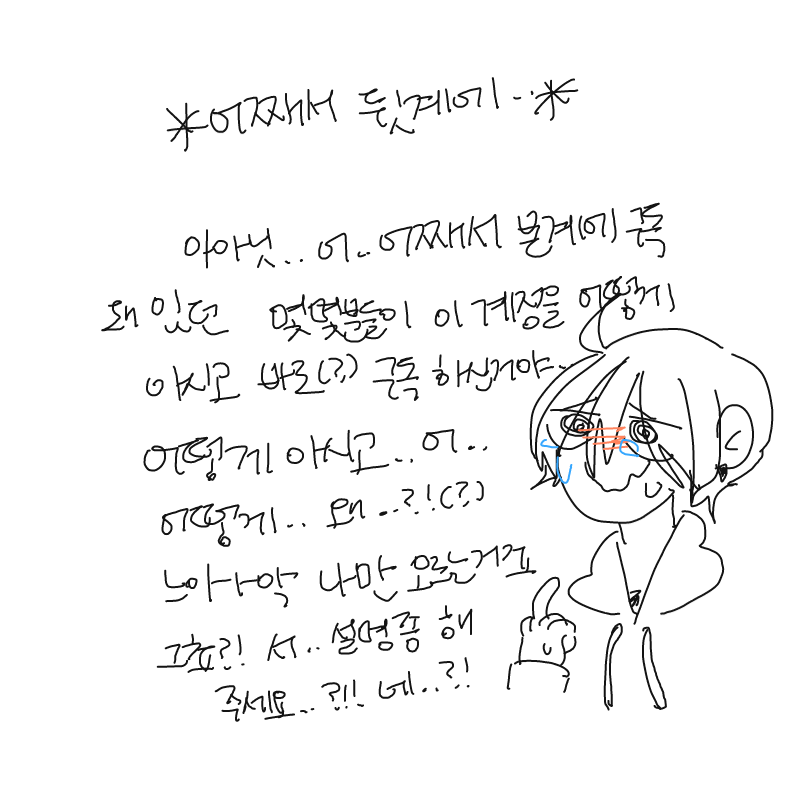 *어째서 뒷계에..*
아아닛.. 어.. 어째서 본계에 구독
돼 있던 몇몇분들이 이 계정을 어떻게
아시고 바로(?) 구독 하신거야..
어떻게 아시고.. 어..
어떻게.. 왜..?!(?)
느아아악 나만 모르는거죠
그쵸?! 서.. 설명좀 해
주세요..?!! 네..?!